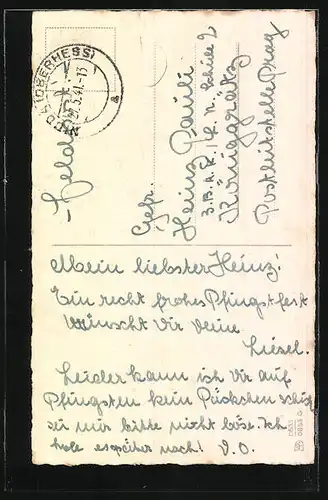 (OBERHESS)
27.5.41.-15
a
Feldpost
Gefr.
Heinz Pauli
Königgrätz
Postleitstelle Prag
Mein liebster Heinz!
Ein recht frohes Pfingstfest
wünscht Dir Deine
Liesel.
Leider kann ich Dir auf
Pfingsten kein Päckchen schick.
sei mir bitte nicht böse. Ich
hole es später nach! D.O.